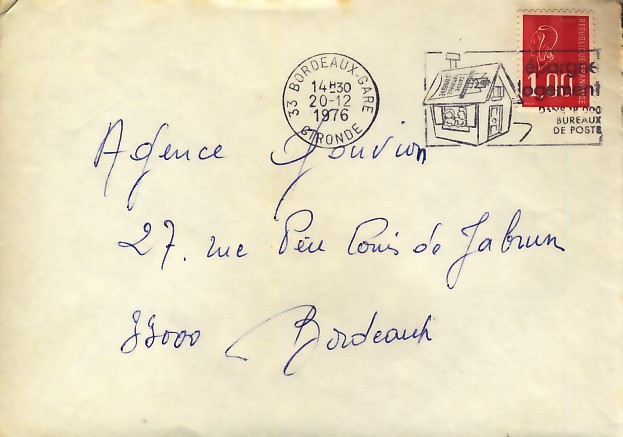 33 BORDEAUX-GARE
14H30
20-12
1976
GIRONDE
RÉPUBLIQUE FRANÇAISE
1,00
épargne
logement
BUREAUX
DE POSTE
Agence Gouvion
27. rue Père Louis de Jabrun
33000 Bordeaux